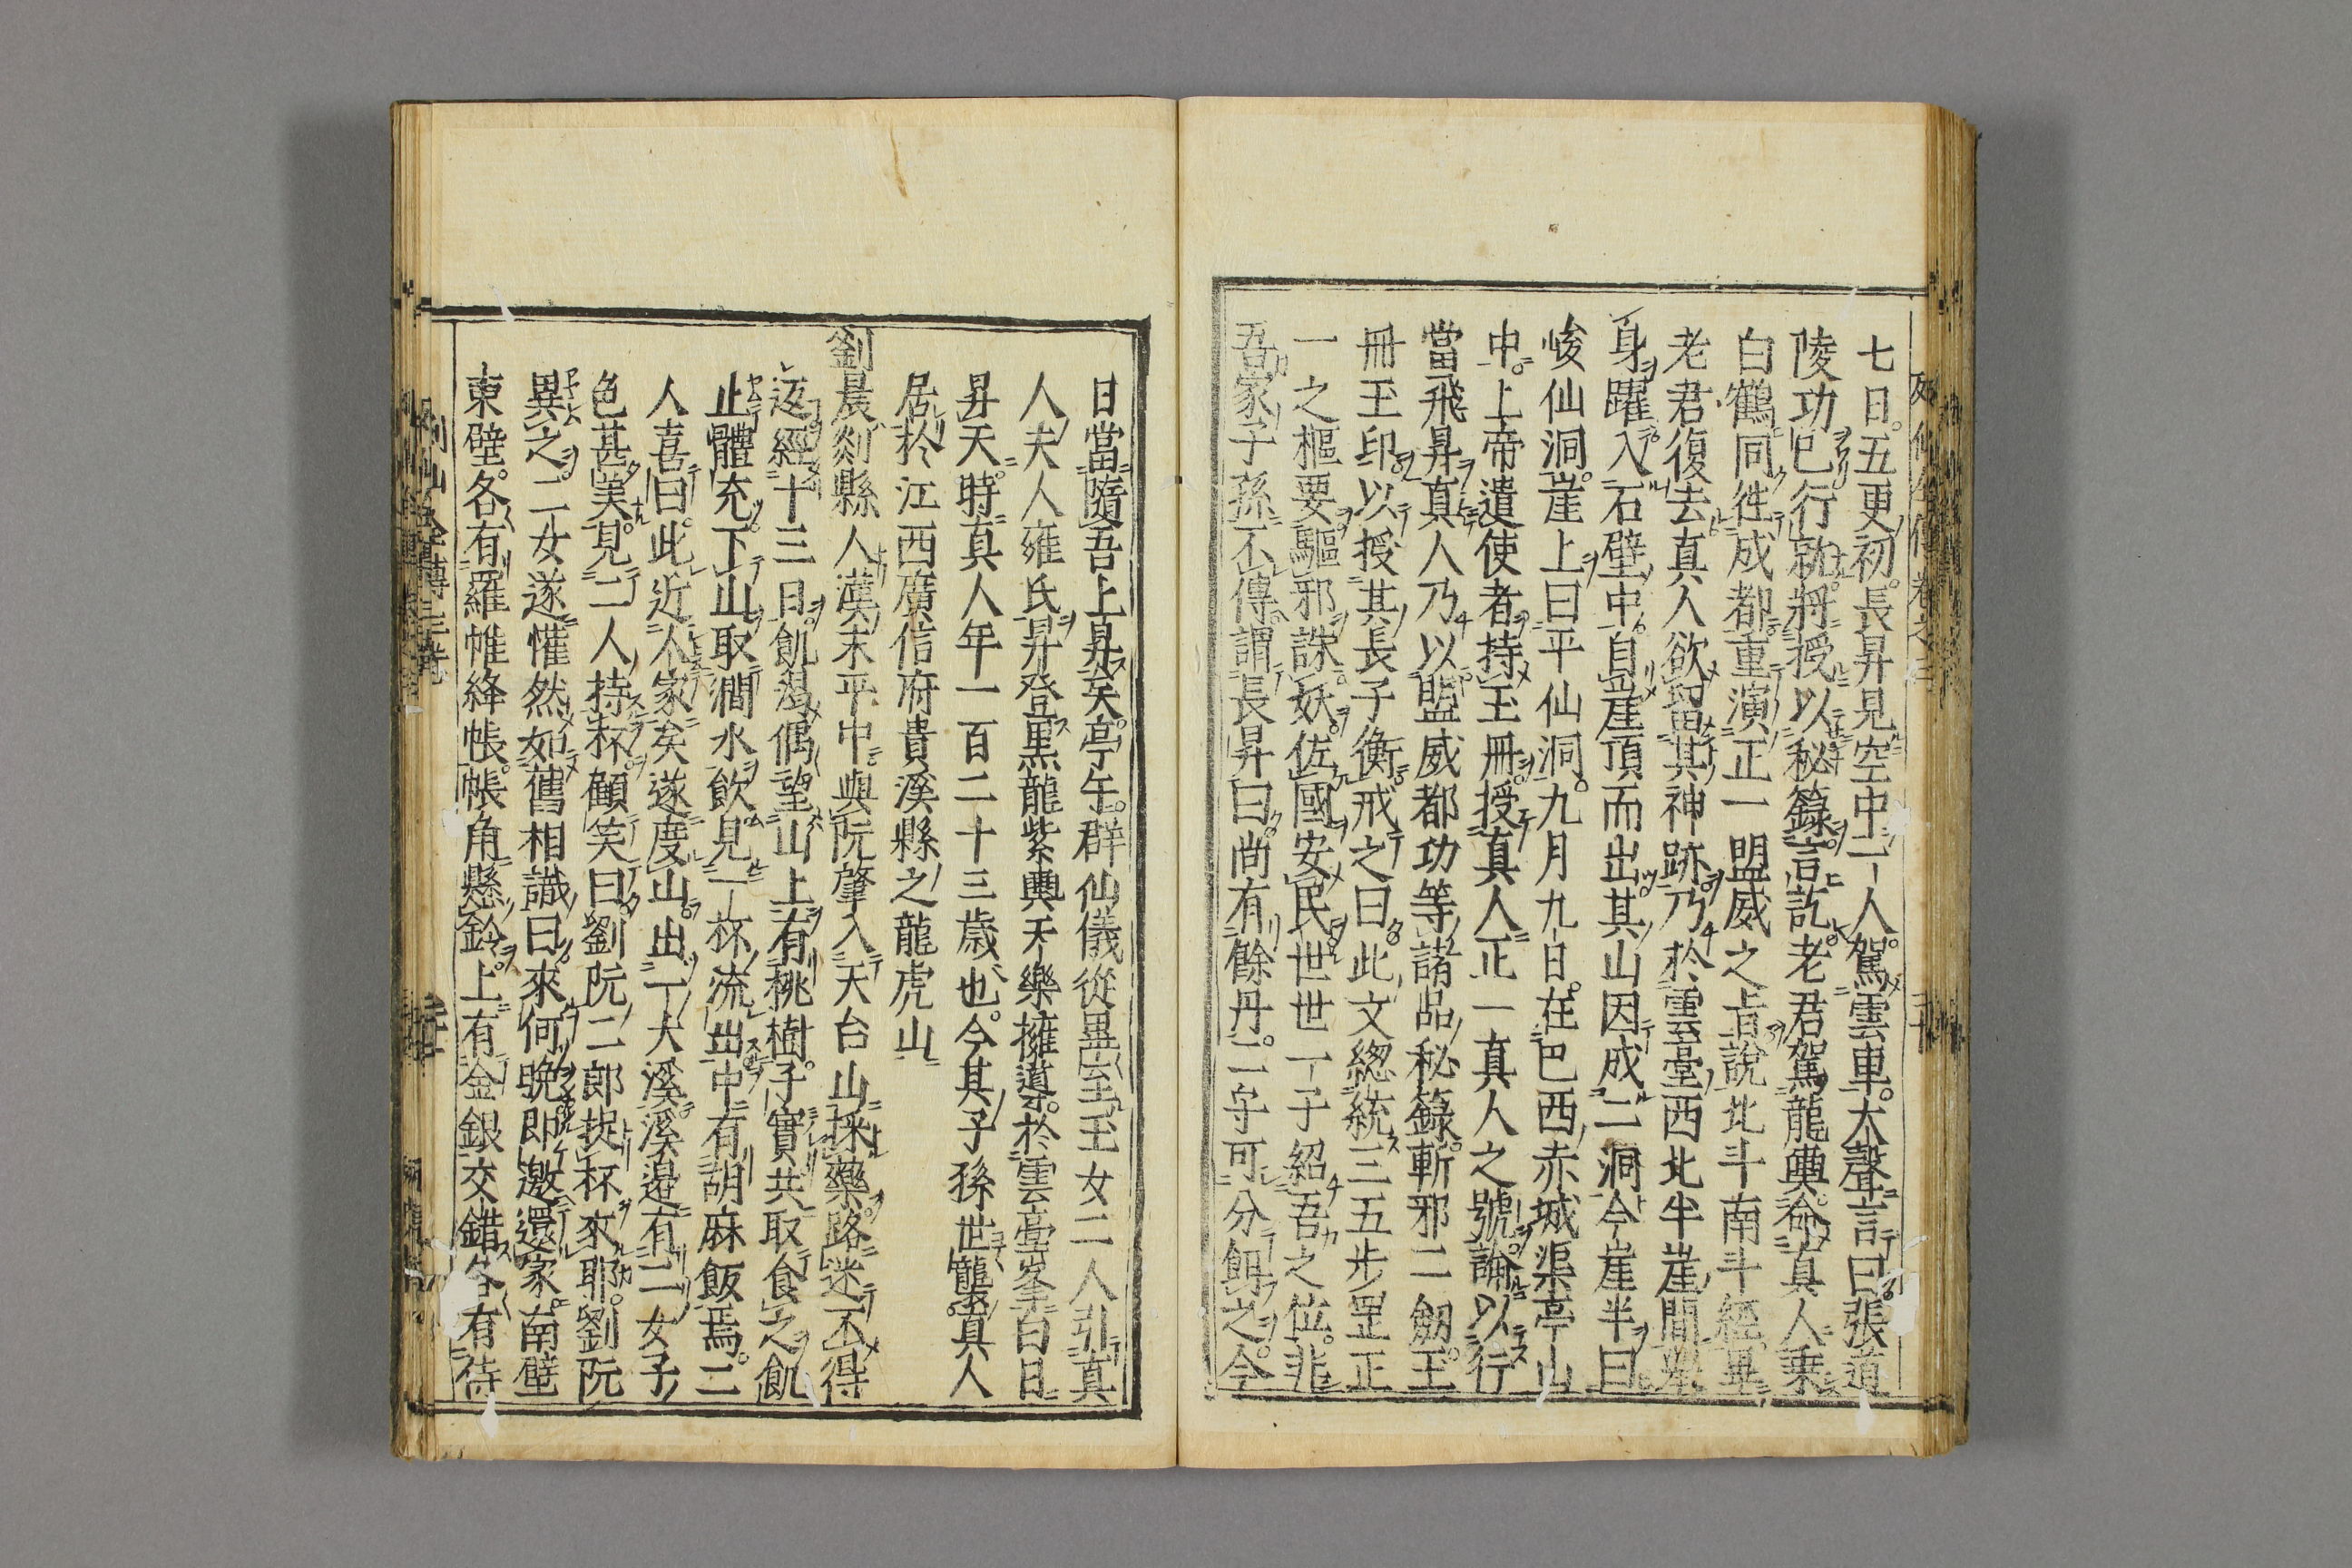 七日五更初長昇見空中一人駕雲車大聲言曰張道
陵功已行就將授以秘籙言訖老君駕龍輿命真人乗
白鶴同徃成都重演正一盟威之旨說北斗南斗經畢
老君復去真人欲留其神跡乃於雲臺西北半崖間舉
身躍入石壁中自崖頂而出其山因成二洞今崖半曰
峻仙洞崖上曰平仙洞九月九日在巴西赤城渠亭山
中上帝遣使者持玉冊授真人正一真人之號諭以行
當飛昇真人乃以盟威都功等諸品秘籙斬邪二劔玉
冊玉印以授其長子衡戒之曰此文総統三五步罡正
一之樞要驅邪誅妖佐國安民世世一子紹吾之位非
吾家子孫不傳謂長昇曰尚有餘丹二字可分餌之今
日當隨吾上昇矣亭午群仙儀從畢至玉女二人引真
人夫人雍氏昇登黒龍紫輿天樂擁導於雲臺峯白日
昇天時真人年一百二十三歳也今其子孫世襲真人
居於江西廣信府貴溪縣之龍虎山
劉晨剡縣人漢末平中與阮肇入天台山採藥路迷不得
返經十三日飢渇偶望山上有桃樹子實共取食之飢
止體充下山取澗水飲見一杯流出中有胡麻飯焉二
人喜曰此近人家矣遂度山出一大溪溪邉有二女子
色甚美見二人持杯顧笑曰劉阮二郎捉杯來耶劉阮
異之二女遂懽然如舊相識曰來何晩即邀還家南壁
東壁各有羅帷絳帳帳角懸鈴上有金銀交錯各有侍